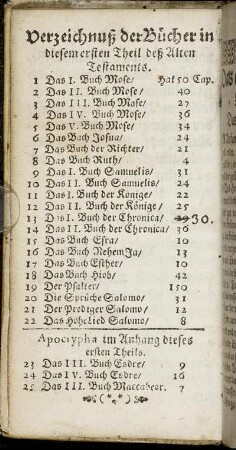 Verzeichnuß der Bücher in
diesem ersten Theil deß Alten
Testaments.
1 Das I. Buch Mose/ Hat 50 Cap.
2 Das II. Buch Mose/ 40
3 Das III. Buch Mose/ 27
4 Das IV. Buch Mose/ 36
5 Das V. Buch Mose/ 34
6 Das Buch Josua/ 24
7 Das Buch der Richter/ 21
8 Das Buch Ruth/ 4
9 Das I. Buch Samuelis/ 31
10 Das II. Buch Samuelis/ 24
11 Das I. Buch der Könige/ 22
12 Das II. Buch der Könige/ 25
13 Das I. Buch der Chronica/ 29 30.
14 Das II. Buch der Chronica/ 36
15 Das Buch Esra/ 10
16 Das Buch Nehemja/ 13
17 Das Buch Esther/ 10
18 Das Buch Hiob/ 42
19 Der Psalter/ 150
20 Die Sprüche Salomo/ 31
21 Der Prediger Salomo/ 12
22 Das Hohelied Salomo/ 8
Apocrypha im Anhang dieses
ersten Theils.
23 Das III. Buch Esdre/ 9
24 Das IV. Buch Esdre/ 16
25 Das III. Buch Maccabeor. 7